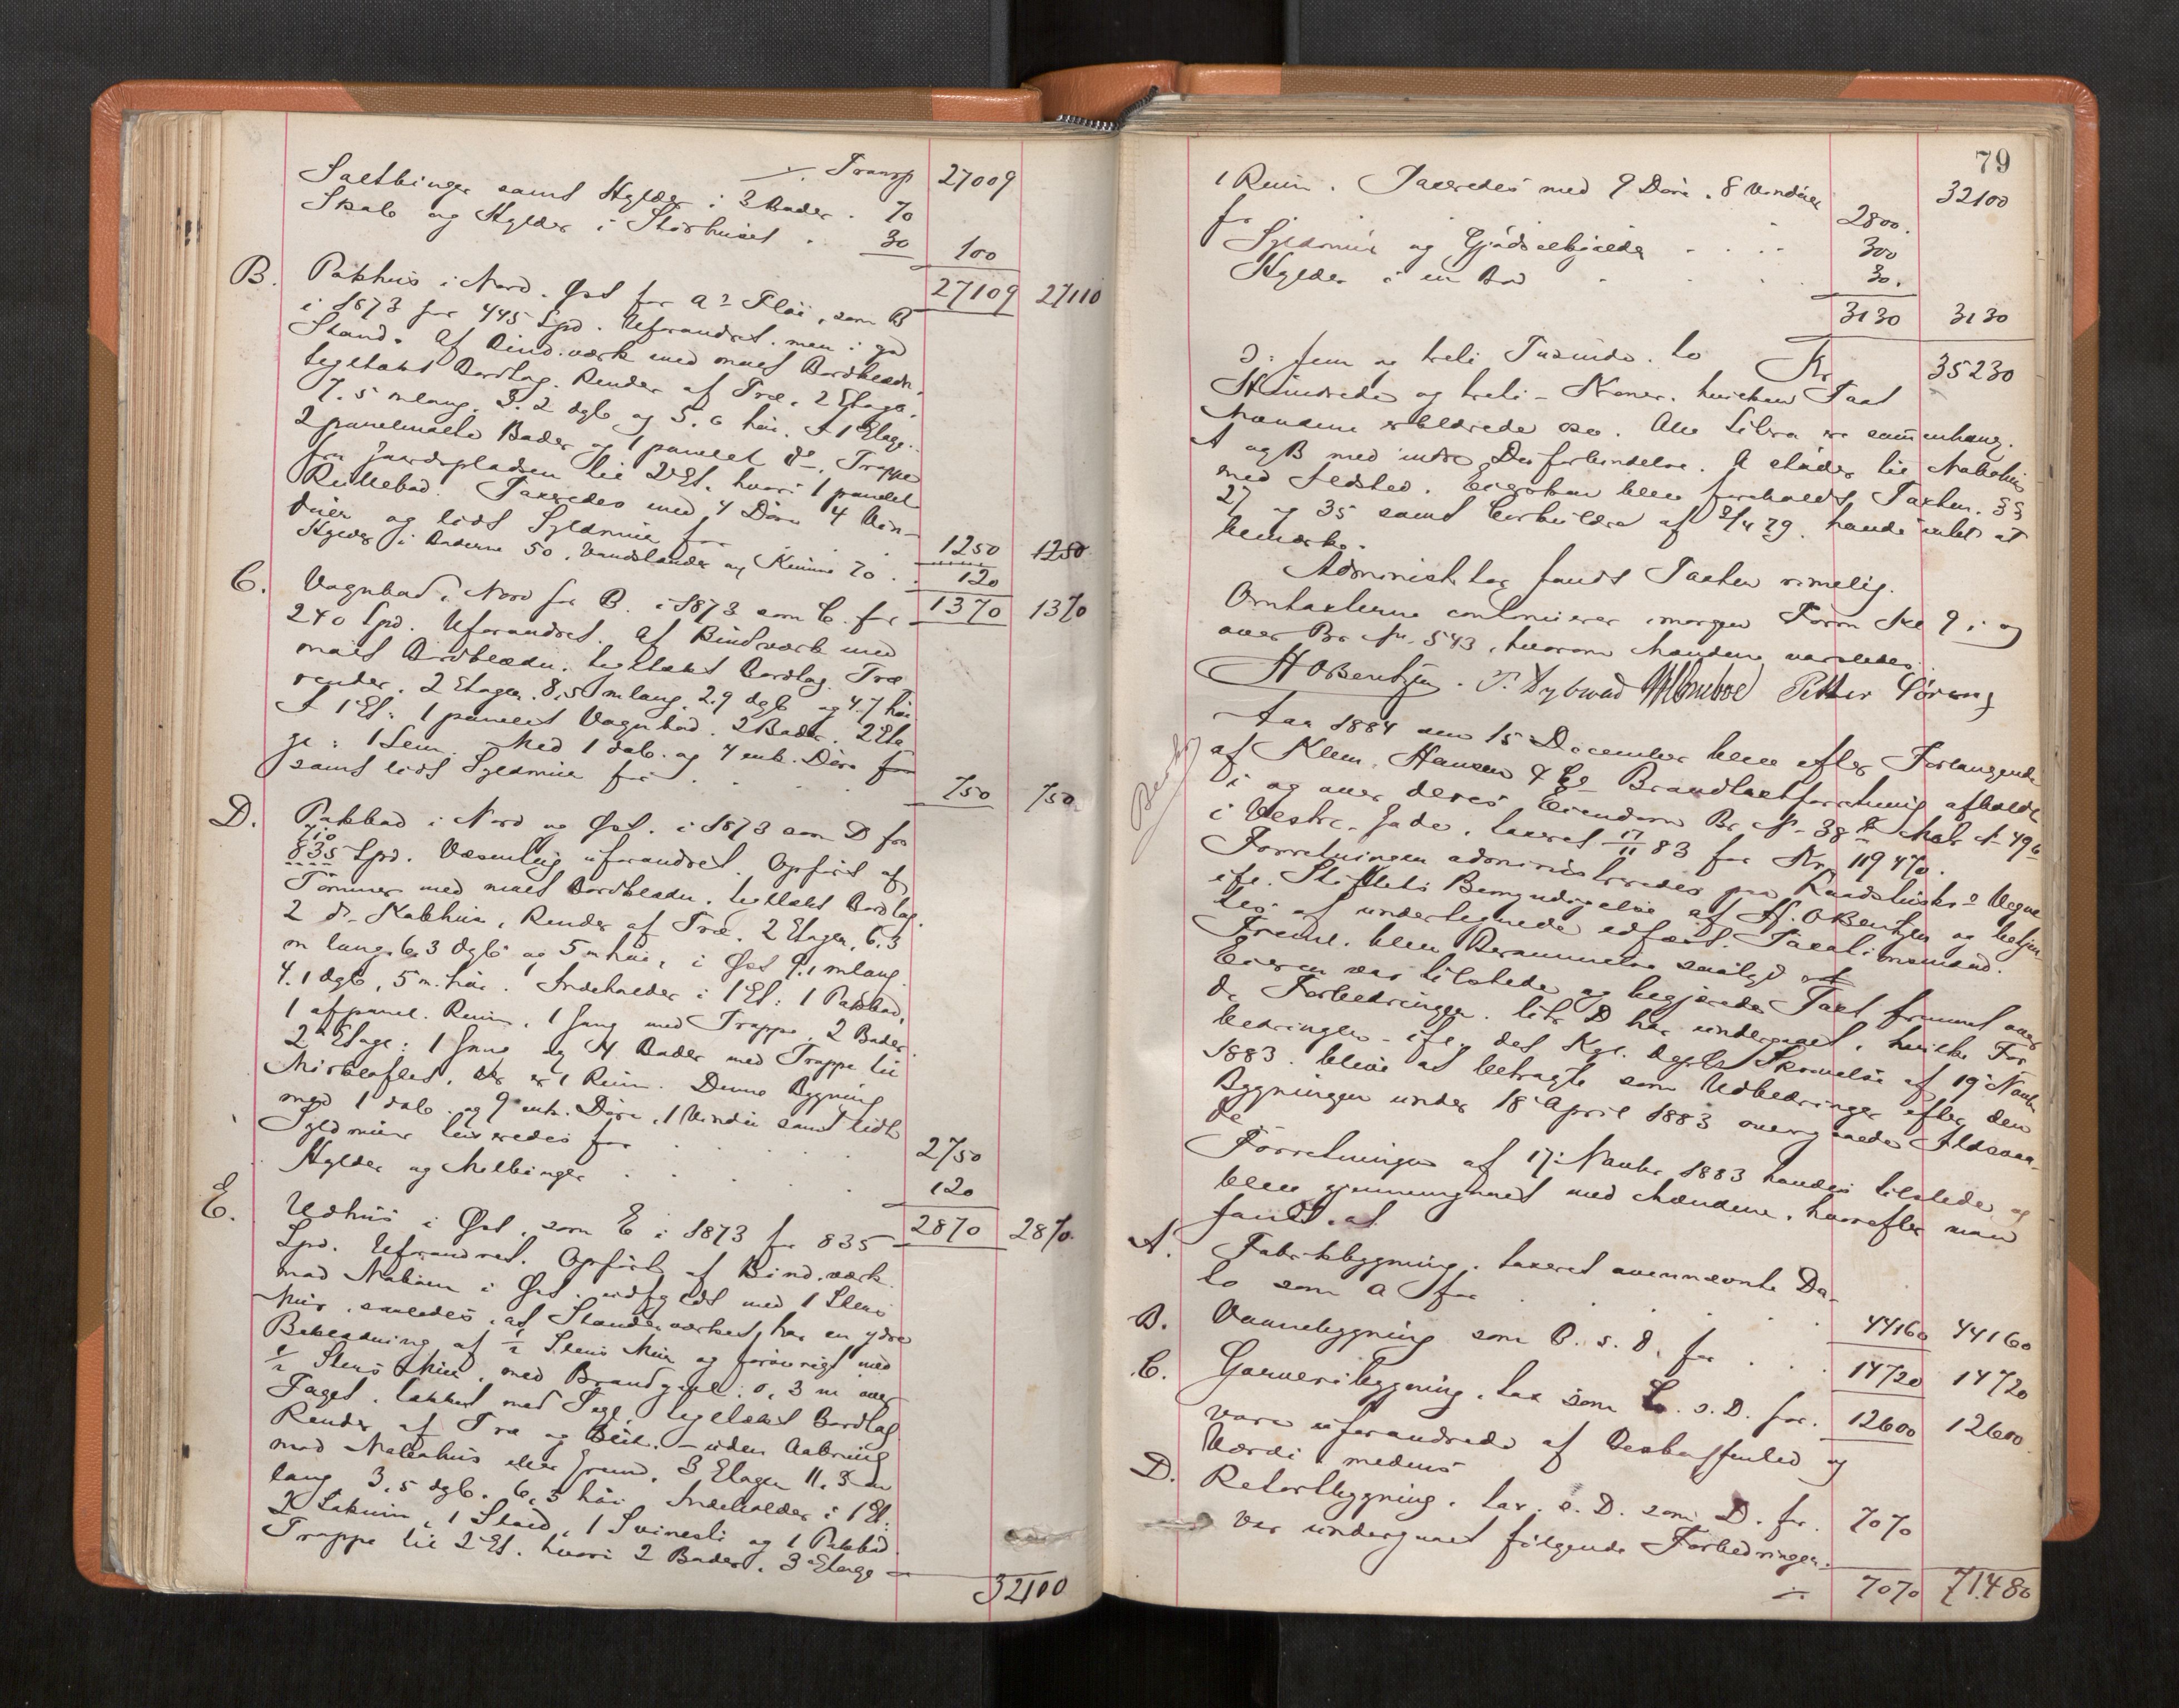 ./. Transp 27009
Saltbinger samt Hylder i 3 Boder . 70
Skab og Hylder i Størhuset . 30 100
27109 27110
B. Pakhus i Nord-Øst for a2 Fløi, som B
i 1873 for 445 Spd. Uforandret. men i god
Stand. Af Bind.værk med malt Bordklædn.
tegltækt Bordtag. Render af Træ. 2 Etage.
7.5 m lang. 3.2 dyb og 5.6 høi. I 1 Etage.
2 panelmalte Boder og 1 panelet do. Trappe
fra Gaardspladsen til 2 Et. hvori 1 panelt
Rullebod. Taxeredes med 4 Døre 4 Vin-
duer og lidt Ildmur for . . . 1250 1250
Hylder i Boderne 50, Vandstander og Rumme 70 . . 120
1370 1370
C. Vognbod i Nord for B. i 1873 som C. for
240 Spd. Uforandret. Af Bindværk med
malt Bordklædn. teglтækt Bordtag. Træ
render. 2 Etager. 8,5 m lang. 2.9 dyb og 4.7 høi.
I 1 Et: 1 panelet Vognbod. 2 Boder. 2 Eta-
ge: 1 Lem. Med 1 dob. og 4 enk. Døre for
samt lidt Ildmur for . . . . 750 750
D. Pakbod i Nord og Øst. i 1873 som D for
710
835 Spd. Væsentlig uforandret. Opført af
Tømmer med malt Bordklædn. teglтækt Bordtag.
2 do Kobhus, Render af Træ. 2 Etager, 6.3
m lang. 6.3 dyb og 5 m høi, i Øst 9.1 m lang.
4.1 dyb, 5 m. høi. Indeholder i 1 Et: 1 Pakbod,
1 afpanel. Rum, 1 Gang med Trappe. 2 Boder.
2den Etage: 1 Gang og 4 Boder med Trappe til
Mørkeloftet, der er 1 Rum. Denne Bygning
med 1 dob. og 9 enk. Døre, 1 Vindu samt lidt
Ildmur taxeredes for . . . . . 2750
Hylder og Melbinger . . . . . 120
2870 2870.
E. Udhus i Øst, som E i 1873 for 835
Spd. Uforandret. Opført af Bind.værk
mod Naboen i Øst. udfyldt med 1 Stens
Mur, saaledes, at Standerværket har en ydre
Beklædning af ½ Stens Mur og forøvrigt med
½ Stens Mur, med Brandgavl. 0,3 m over
Taget. takket med Tegl. teglтækt Bordtag
Render af Træ og Blik. – uden Aabning
mod Nabohus eller Grund. 3 Etager 11.3 m
lang 3.5 dyb. 6,5 høi. Indeholder i 1 Et:
2 Lokum, 1 Stald, 1 Svinesti og 1 Pakbod.
Trappe til 2 Et. hvori 2 Boder. 3 Etage
32100
79
32100
1 Rum. Taxeredes med 9 Døre. 8 Vinduer
for 2800.
Ildmur og Gjødselkjelder . . . . 300
Hylder i en Bod . . . . 30.
3130 3130
Kr 35230
ɔ: fem og treti Tusinde. to
Hundrede og treti – Kroner. hvilken Taxt
Mændene erklærede osv. Alle Litra er sammenhæng.
A og B med indre Dørforbindelse. A støder til Nabohus
med Ildsted. Eierskab blev foreholdt Taxten. §§
27 og 35 samt Cirkulære af 3/4 79. havde intet at
bemærke.
Administrator fandt Taxten rimelig.
Omtaxterne continuerer imorgen Form Kl 9 i og
over Br No. 543, hvorom Mændene varsledes.
H O Bentzen. P. Dybwad Petter Sørens
Aar 1884 den 15 December blev efter Forlangende
af Klem. Hansen & Co Brandtaxtforretning afholdt
i og over deres Eiendom Br. No 38 Mat No 496
i Vestre-Gade. taxeret 17/11 83 for Kr. 119470.
Forretningen administreredes paa Raadstuens Vegne
efr. Stiftets Bemyndigelse af H. O Bentzen og betjen-
tes af undertegnede edfæst. Taxationsmænd.
Freml. blev Berammelse saalyd
Eieren var tilstede og begjærede Taxt fremmet over
de Forbedringer. litr D har undergaaet. hvilke For-
bedringer – ifl. det Kgl. Dept.s Skrivelse af 19 Novbr
1883. blive at betragte som Udbedringer efter den
Bygningen under 18 April 1883 overgaaede Ildsvaa-
de
Forretningen af 17. Novbr 1883 havdes tilstede og
blev gjennemgaaet med Mændene. hvorefter man
fandt, at
A. Fabrikbygning. taxeret ovennævnte Da-
to som A for . . . . . 44160 44160
B. Vannebygning som B. s. D. for . . . 14720 14720
C. Garveribygning. tax som C. s. D. for. 12600 12600.
vare uforandrede af Beskaffenhed og
Værdi medens
D. Retortbygning. tax. s. D. som D. for. 7070
var undergaaet følgende Forbedringer.
./. 7070 71480